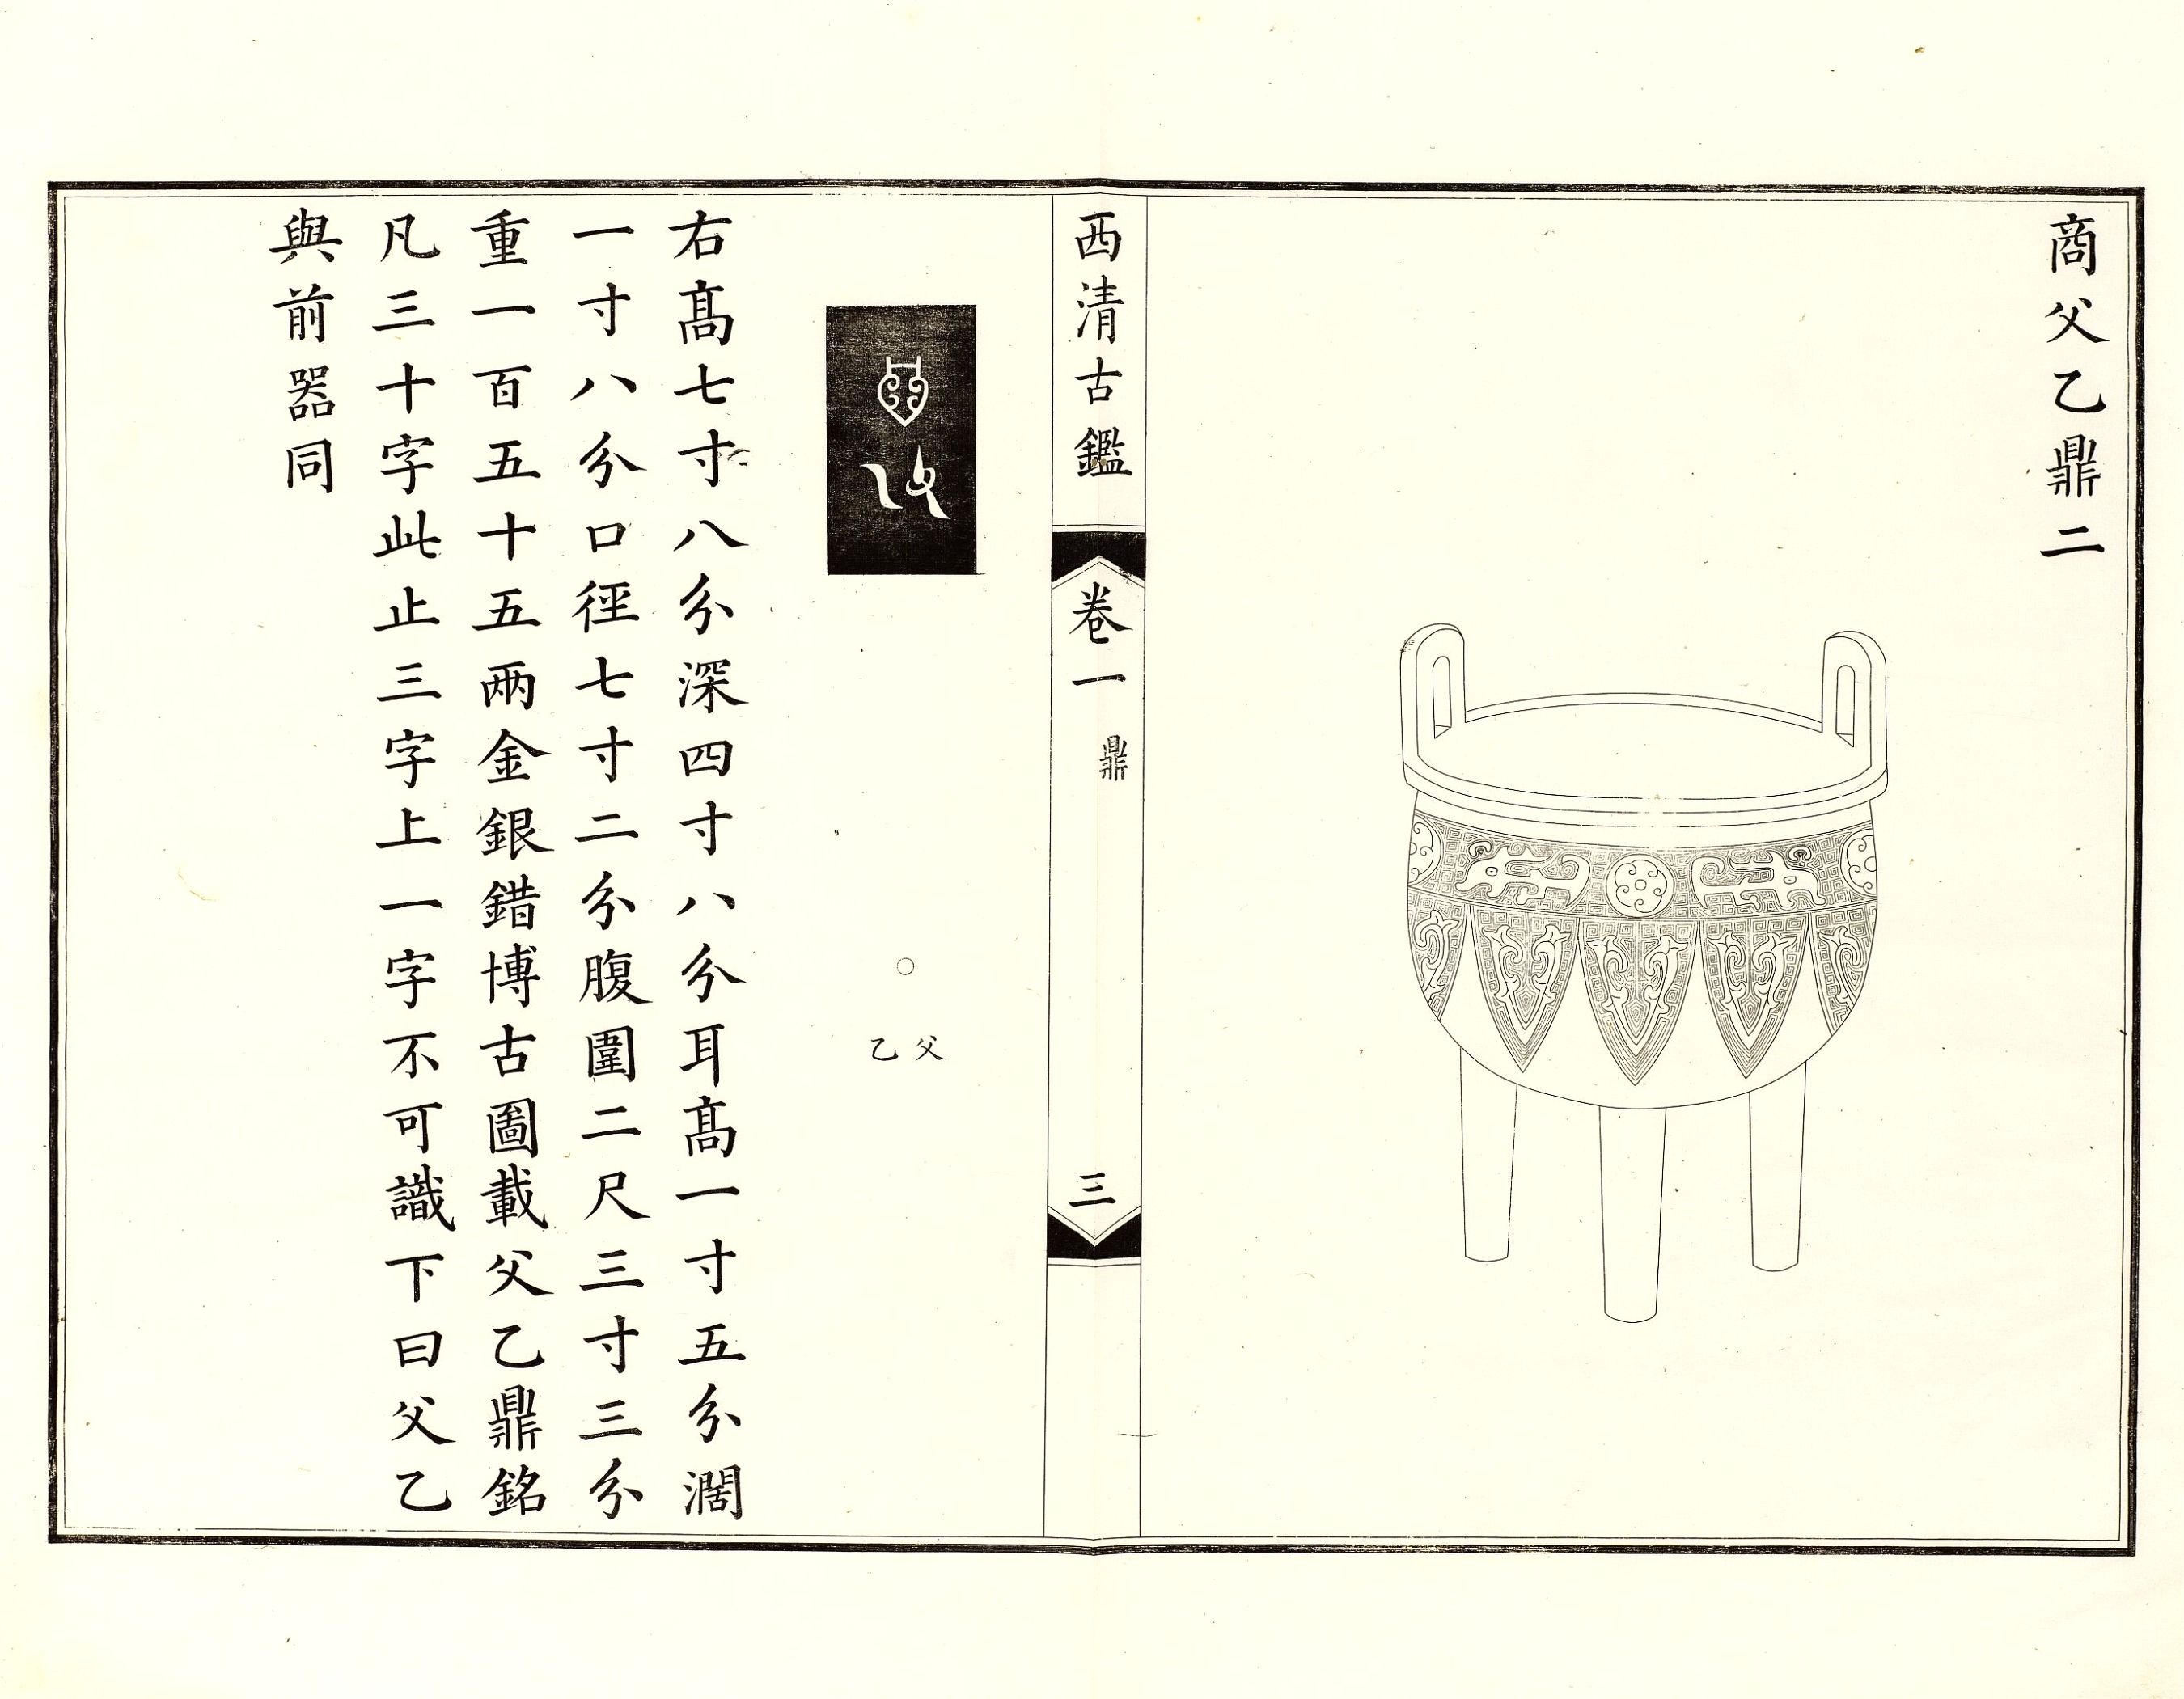 商父乙鼎二
西清古鑑
卷一
鼎
三
○
父乙
右高七寸八分深四寸八分耳高一寸五分濶
一寸八分口徑七寸二分腹圍二尺三寸三分
重一百五十五兩金銀錯博古圖載父乙鼎銘
凡三十字此止三字上一字不可識下曰父乙
與前器同